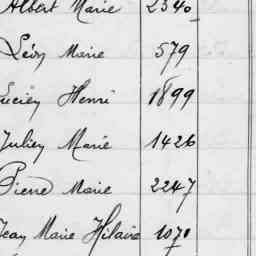 Albert Marie 2340
Léon Marie 579
Lucien Henri 1899
Julien Marie 1426
Pierre Marie 2247
Jean Marie Hilaire 1070